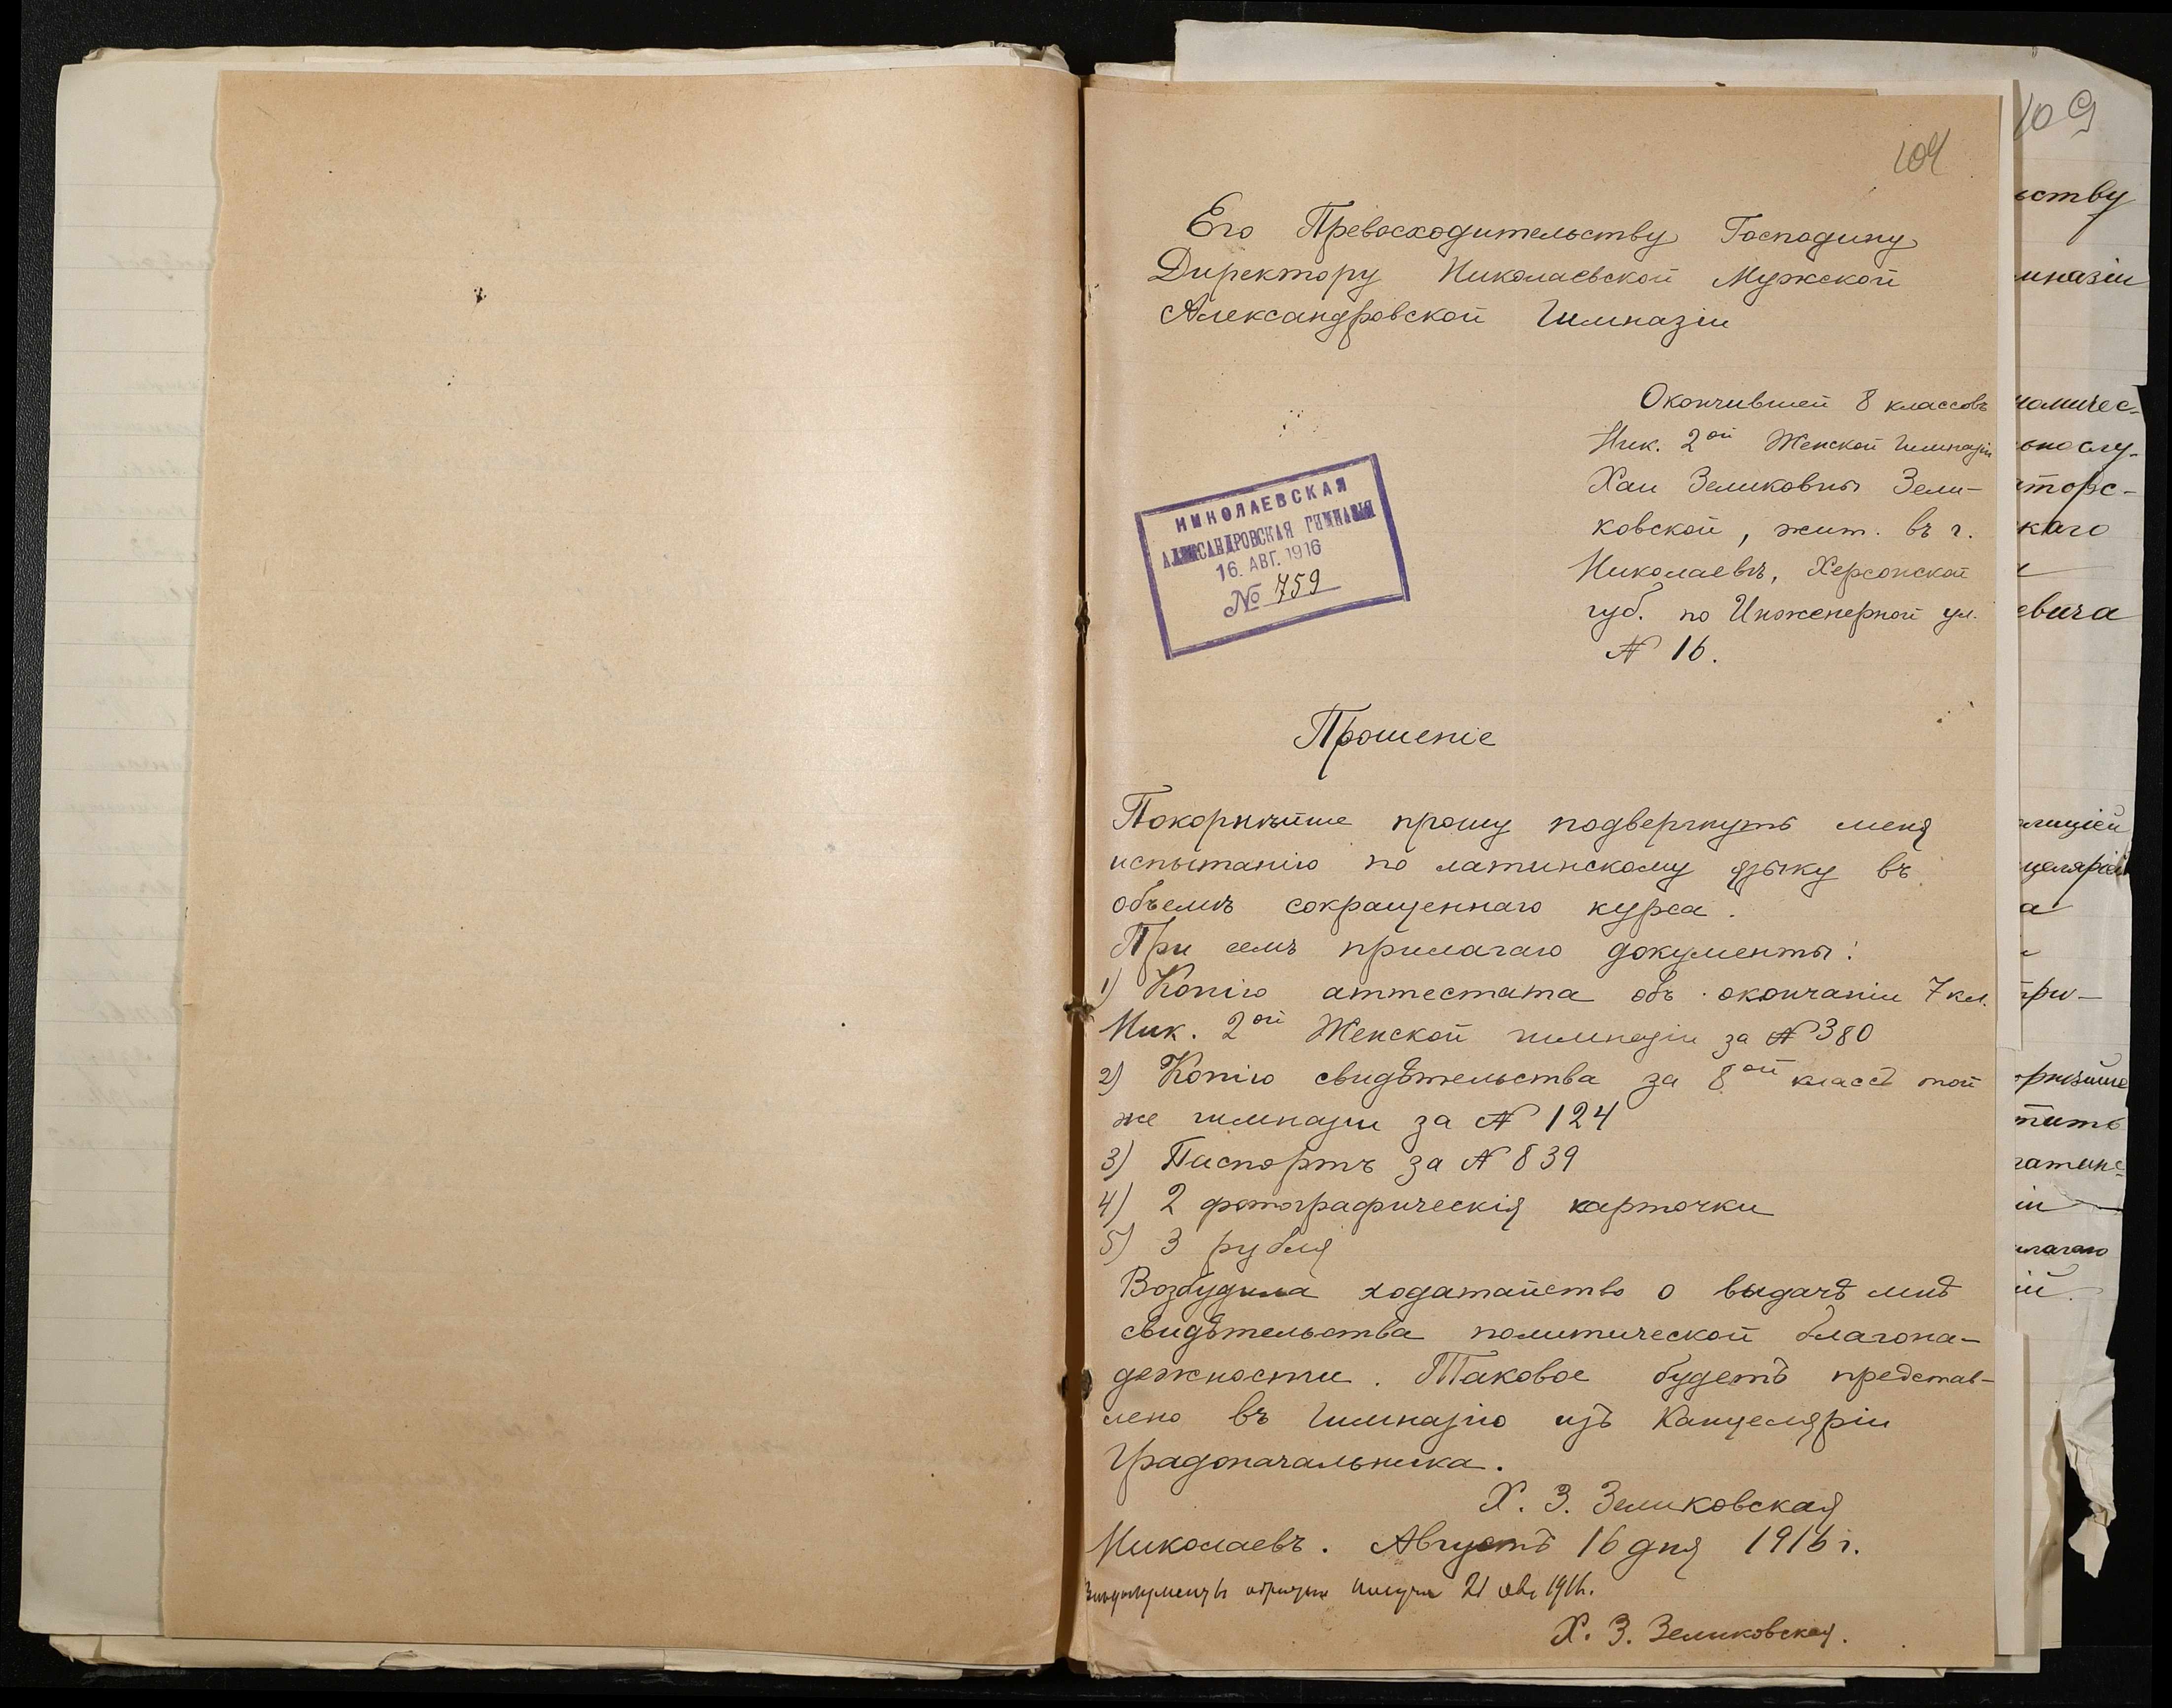 104
Его Превосходительству Господину
Директору Николаевской Мужской
Александровской Гимназіи
Окончившей 8 классовъ
Ник. 2ой Женской Гимназіи
Хаи Зеликовны Зели-
ковской, жит. въ г.
Николаевѣ, Херсонской
губ. по Инженерной ул.
№ 16.
НИКОЛАЕВСКАЯ
АЛЕКСАНДРОВСКАЯ ГИМНАЗІЯ
16. АВГ. 1916
№ 759
Прошеніе
Покорнѣйше прошу подвергнуть меня
испытанію по латинскому языку въ
объемѣ сокращеннаго курса.
При семъ прилагаю документы:
1) Копію аттестата объ окончаніи 7 кл.
Ник. 2ой Женской гимназіи за № 380
2) Копію свидѣтельства за 8ой классъ той
же гимназіи за № 124
3) Паспортъ за № 839
4) 2 фотографическія карточки
5) 3 рубля
Возбудила ходатайство о выдачѣ мнѣ
свидѣтельства политической благона-
дежности. Таковое будетъ представ-
лено въ Гимназію изъ Канцеляріи
Градоначальника.
Х. З. Зеликовская
Николаевъ. Августъ 16 дня 1916 г.
документы обратно 21 авг 1916.
Х. З. Зеликовская.
109
ьству
мназіи
номичес-
каго
евича
а
при-